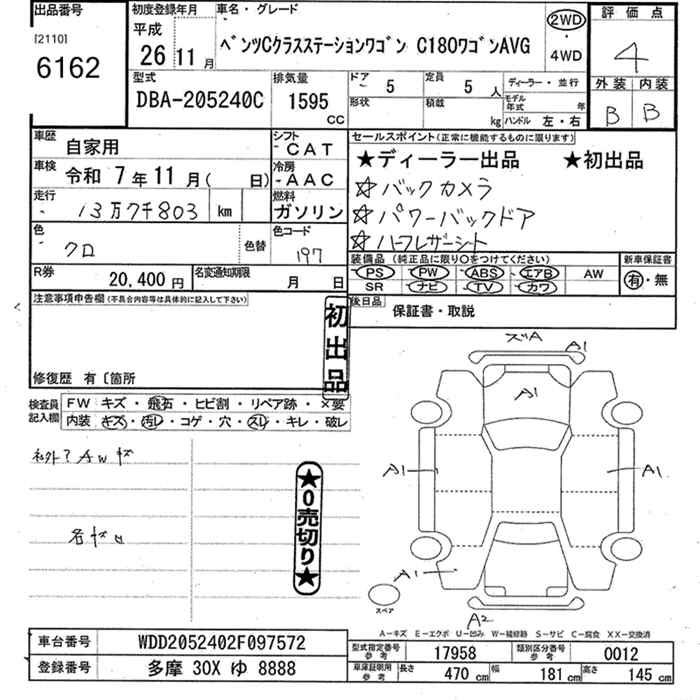 出品番号
[2110]
6162
初度登録年月
平成
26 11月
車名・グレード
ベンツCクラスステーションワゴン C180ワゴンAVG
2WD
・
4WD
評価点
4
外装 内装
B B
型式
DBA-205240C
排気量
1595
CC
ドア 5
定員 5 人
形状
積載 kg
ディーラー・並行
モデル年式 年
ハンドル 左・右
車歴
自家用
シフト
CAT
車検
令和 7年 11月( 日)
冷房
AAC
走行
13万7千803 km
燃料
ガソリン
色
クロ
色替
色コード
197
R券
20,400円
名変通知期限
月 日
セールスポイント(正常に機能するものに限ります)
★ディーラー出品 ★初出品
☆バックカメラ
☆パワーバックドア
☆ハーフレザーシート
装備品(純正品に限り○をつけてください)
PS PW ABS エアB AW
SR ナビ TV カワ
新車保証書
有・無
後日品
保証書・取説
注意事項申告欄(不具合内容等は具体的に記入して下さい)
初出品
修復歴 有〔箇所
検査員記入欄
FW キズ・飛石・ヒビ割・リペア跡・×要
内装 キズ・汚レ・コゲ・穴・スレ・キレ・破レ
★0売切り★
ズリA
A1
A1
A1
A1
A1
A2
スペア
A-キズ E-エクボ U-凹み W-補修跡 S-サビ C-腐食 XX-交換済
車台番号
WDD2052402F097572
登録番号
多摩 30X ゆ 8888
型式指定番号
参考
17958
類別区分番号
参考
0012
車庫証明用
参考
長さ 470 cm
幅 181 cm
高さ 145 cm